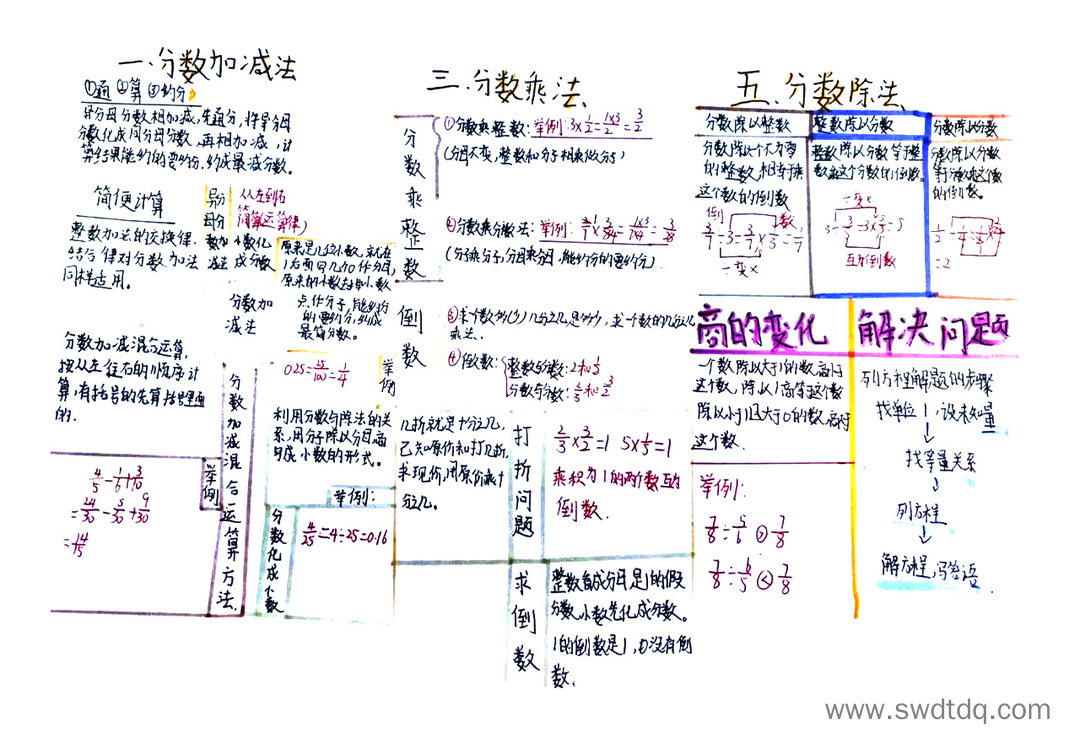 一.分数加减法
①通 ②算 ③约分
异分母分数相加减,先通分,将异分母
分数化成同分母分数,再相加减,计
算结果能约的要约分,约成最减分数。
简便计算
整数加法的交换律,
结合律对分数加法
同样适用。
异分
母分
数加
减法
从左到右
简算(运算律)
小数化
成分数
原来是几位小数,就在
1后面写几个0作分母,
原来的小数去掉小数
点作分子,能约分
的要约分,约成
最简分数。
分数加
减法
0.25=25/100=1/4
举例
分数加减混合运算,
按从左往右的顺序计
算,有括号的先算括号里面
的.
分数加减混合运算方法.
举例
4/5-1/6+3/10
=24/30-5/30+9/30
=14/15
利用分数与除法的关
系,用分子除以分母
写成小数的形式。
举例:
分数化成小数
4/25=4÷25=0.16
三.分数乘法
分数乘整数
①分数乘整数:举例:3×1/2=1×3/2=3/2
(分母不变,整数和分子相乘做分子)
②分数乘分数法:举例:
(分子乘分子,分母乘分母,能约分的要约分).
③求一个数的几分之几是多少,
乘法.
倒数
④倒数:
整数与分数:2和1/2
分数与分数:2/3和3/2
几折就是十分之几,
已知原价和打几折,
求现价,用原价乘十
分之几。
打折问题
2/3×3/2=1 5×1/5=1
乘积为1的两个数互为
倒数.
求倒数
整数看成分母是1的假
分数,小数先化成分数。
1的倒数是1,0没有倒
数.
五.分数除法
分数除以整数
分数除以一个不为零
的整数,相当于乘
这个数的倒数
倒数
3/7÷3=3/7×1/3=1/7
一变×
整数除以分数
整数除以分数等于整
数乘这个分数的倒数.
一变×
互为倒数
分数除以分数
分数除以分数
等于分数乘这个数
的倒数.
=2
商的变化
一个数除以大于1的数,商小于
这个数,除以1商等这个数
除以小于1且大于0的数,商大于
这个数.
举例:
7/8÷5/6>7/8
7/8÷6/5<7/8
解决问题
列方程解题的步骤
找单位1,设未知量
找等量关系
列方程
解方程,写答语
www.swdtdq.com